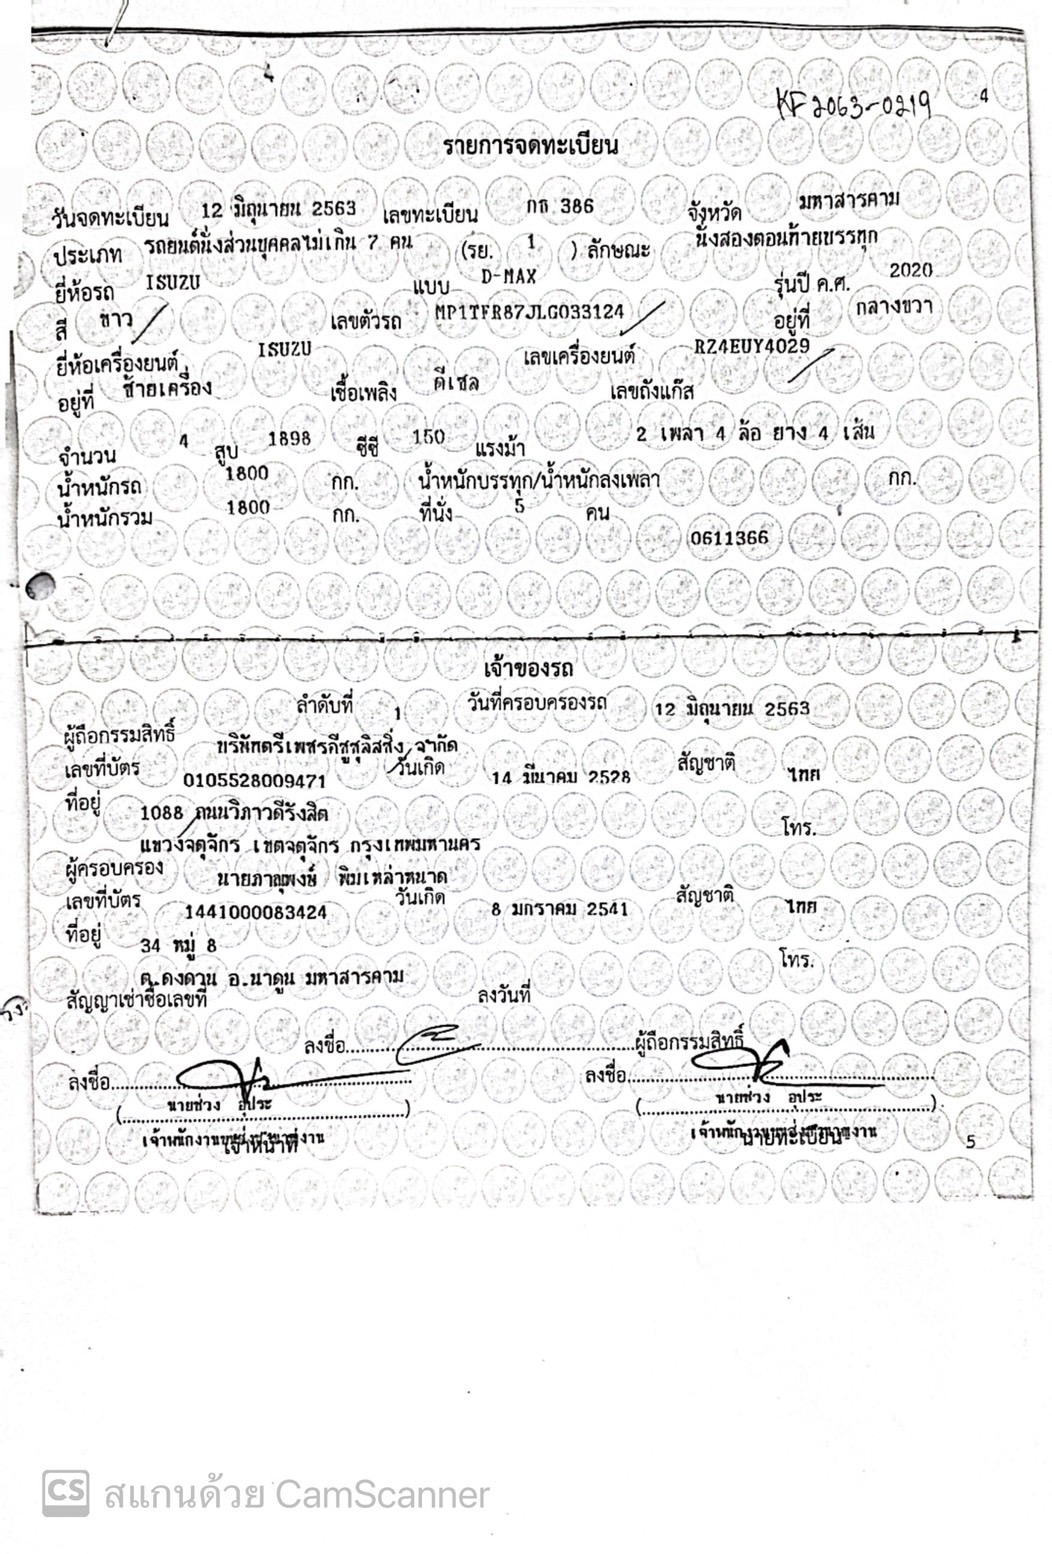 KF2063-0219 4
รายการจดทะเบียน
วันจดทะเบียน 12 มิถุนายน 2563 เลขทะเบียน 386 จังหวัด มหาสารคาม
ประเภท รถยนต์นั่งส่วนบุคคลไม่เกิน 7 คน (รย. 1 ) ลักษณะ นั่งสองตอนท้ายบรรทุก
ยี่ห้อรถ ISUZU แบบ D-MAX รุ่นปี ค.ศ. 2020
สี ขาว เลขตัวรถ MP1TFR87JLG033124 อยู่ที่ กลางขวา
ยี่ห้อเครื่องยนต์ ISUZU เลขเครื่องยนต์ RZ4EUY4029
อยู่ที่ ซ้ายเครื่อง เชื้อเพลิง ดีเซล เลขถังแก๊ส
จำนวน 4 สูบ 1898 ซีซี 150 แรงม้า 2 เพลา 4 ล้อ ยาง 4 เส้น
น้ำหนักรถ 1800 กก. น้ำหนักบรรทุก/น้ำหนักลงเพลา กก.
น้ำหนักรวม 1800 กก. ที่นั่ง 5 คน
0611366
เจ้าของรถ
ลำดับที่ 1 วันที่ครอบครองรถ 12 มิถุนายน 2563
ผู้ถือกรรมสิทธิ์ บริษัทตรีเพชรอีซูซุลิสซิ่ง จำกัด
เลขที่บัตร 0105528009471 วันเกิด 14 มีนาคม 2528 สัญชาติ ไทย
ที่อยู่ 1088 ถนนวิภาวดีรังสิต โทร.
แขวงจตุจักร เขตจตุจักร กรุงเทพมหานคร
ผู้ครอบครอง นายภาณุพงษ์ พิมเหล่าหนาด
เลขที่บัตร 1441000083424 วันเกิด 8 มกราคม 2541 สัญชาติ ไทย
ที่อยู่ 34 หมู่ 8 โทร.
ต.ดงดวน อ.นาดูน มหาสารคาม
สัญญาเช่าซื้อเลขที่ ลงวันที่
ลงชื่อ ผู้ถือกรรมสิทธิ์
ลงชื่อ ลงชื่อ
( นายช่วง อุประ ) ( นายช่วง อุประ )
เจ้าหน้าที่ นายทะเบียน 5
CS สแกนด้วย CamScanner